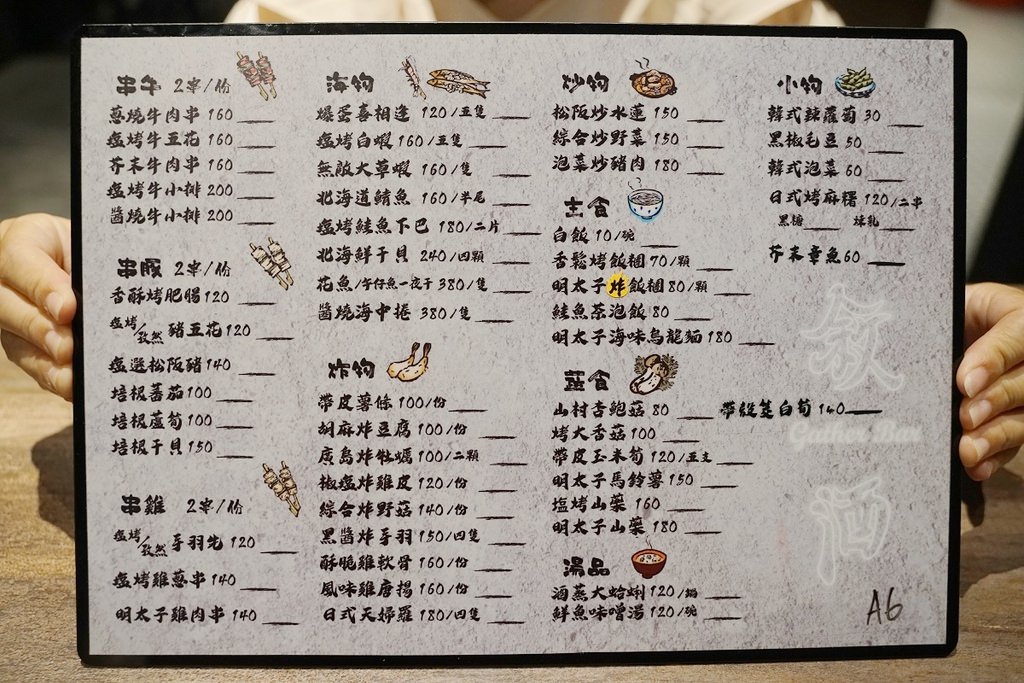 串牛 2串/份
蔥燒牛肉串 160
塩烤牛五花 160
芥末牛肉串 160
塩烤牛小排 200
醬燒牛小排 200
串豚 2串/份
香酥烤肥腸 120
塩烤/孜然 豬五花 120
塩選松阪豬 140
培根蕃茄 100
培根蘆筍 100
培根干貝 150
串雞 2串/份
塩烤/孜然 手羽先 120
塩烤雞蔥串 140
明太子雞肉串 140
海物
爆蛋喜相逢 120/五隻
塩烤白蝦 160/五隻
無敵大草蝦 160/隻
北海道鯖魚 160/半尾
塩烤鮭魚下巴 180/二片
北海鮮干貝 240/四顆
花魚/午仔魚一夜干 380/隻
醬燒海中捲 380/隻
炸物
帶皮薯條 100/份
胡麻炸豆腐 100/份
廣島炸牡蠣 100/二顆
椒塩炸雞皮 120/份
綜合炸野菇 140/份
黑醬炸手羽 150/四隻
酥脆雞軟骨 160/份
風味雞唐揚 160/份
日式天婦羅 180/四隻
炒物
松阪炒水蓮 150
綜合炒野菜 150
泡菜炒豬肉 180
主食
白飯 10/碗
香鬆烤飯糰 70/顆
明太子炸飯糰 80/顆
鮭魚茶泡飯 80
明太子海味烏龍麵 180
蔬食
山村杏鮑菇 80
帶殼茭白筍 140
烤大香菇 100
帶皮玉米筍 120/五支
明太子馬鈴薯 150
塩烤山藥 160
明太子山藥 180
湯品
酒蒸大蛤蜊 120/鍋
鮮魚味噌湯 120/碗
小物
韓式辣蘿蔔 30
黑椒毛豆 50
韓式泡菜 60
日式烤麻糬 120/二串
黑糖 煉乳
芥末章魚 60
酒
A6